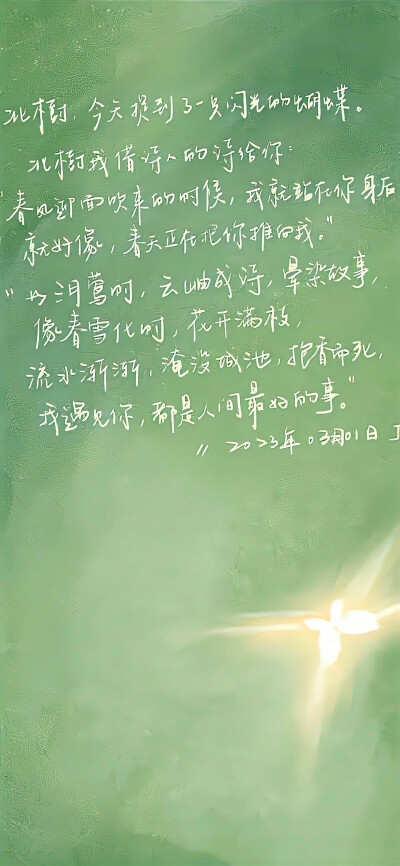 北樹，今天捡到了一只闪光的蝴蝶。
北樹我借诗人的诗给你：
"春风迎面吹来的时候，我就站在你身后
就好像，春天正在把你推向我。"
"如泪莺时，云岫成诗，晕染故事，
像春雪化时，花开满枝，
流水渐渐，淹没城池，抱香而死，
我遇见你，都是人间最好的事。"
" 2023年03月01日